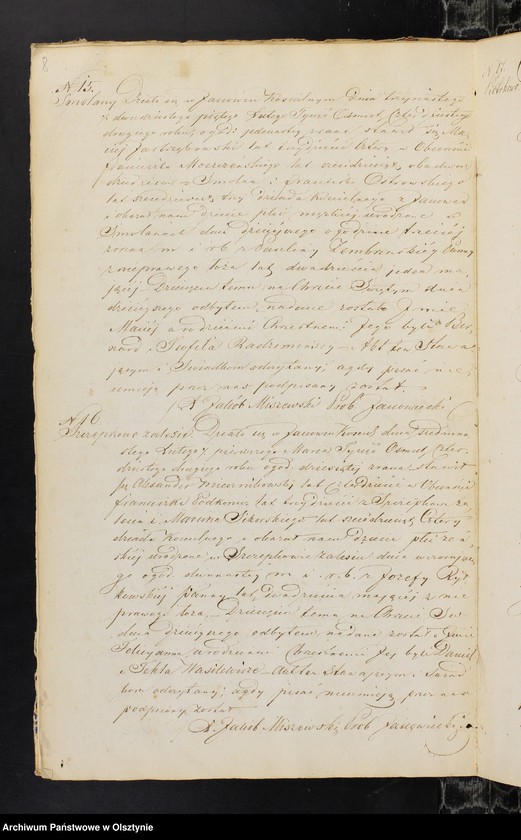 8
N 15.
Smolany Działo się w Janowie Kościelnym dnia trzynastego
i dwudziestego piątego Lutego Tysiąc Ośmset Cztérdziestego
drugiego roku, o godz: jedenastey zrana stawił się Ma-
ciej Jastrzębowski lat trzydzieści Cztery w Obecności
Franciszka lat sześćdziesiąt, obadwa
z Smolan i Franciszka Ostrowskiego
lat dziada kościelnego z Janowa
i okazał nam dziecie płci męzkiéj urodzone w
Smolanach dnia dzisiejszego o godzinie trzeciéj
zrana m i r b z Pauliny Zembrowskiéj Panny
z nieprawego łoża lat dwadzieścia jeden ma-
jącéj. Dziecięciu temu na Chrzcie Świętym dnia
dzisiejszego odbytem, nadane zostało Imie
Maciéj a rodzicami Chrzestnemi Jego byli Ber-
nard i Teofila Radzymińscy. Akt ten Stawa-
jącym i Świadkom odczytany, a gdy pisać nie
umieją przez nas podpisany został.
X. Jakób Miszewski Prob Janowiecki
N 16
Szczepkowo zalesie. Działo się w Janowie Kościel: dnia siedmna-
stego Lutego i pierwszego Marca Tysiąc Ośmset Czter-
dziestego drugiego roku o godz. dziesiątej zrana stawił
się Alexander lat Czterdzieści w Obecności
Franciszka lat trzydzieści z Szczepkowa Za-
lesia i Macieja lat sześćdziesiąt Cztery
dziada Kościelnego i okazał nam dziecie płci żeń-
skiéj urodzone w Szczepkowie zalesiu dnia wczorajsze-
go o godz. dwunastéj m i r. b. z Jozefy Ryt-
kowskiéj Panny lat dwadzieścia mającéj z nie-
prawego łoża. Dziecięciu temu na Chrzcie Św.
dnia dzisiejszego odbytem, nadane zostało Imie
a rodzicami Chrzestnemi Jej byli Daniel
i Tekla Wasilewscy. Akt ten Stawającym i Świad-
kom odczytany; a gdy pisać nieumieją przez nas
podpisany został
X. Jakób Miszewski Prob Janowiecki
N 17.
Archiwum Państwowe w Olsztynie